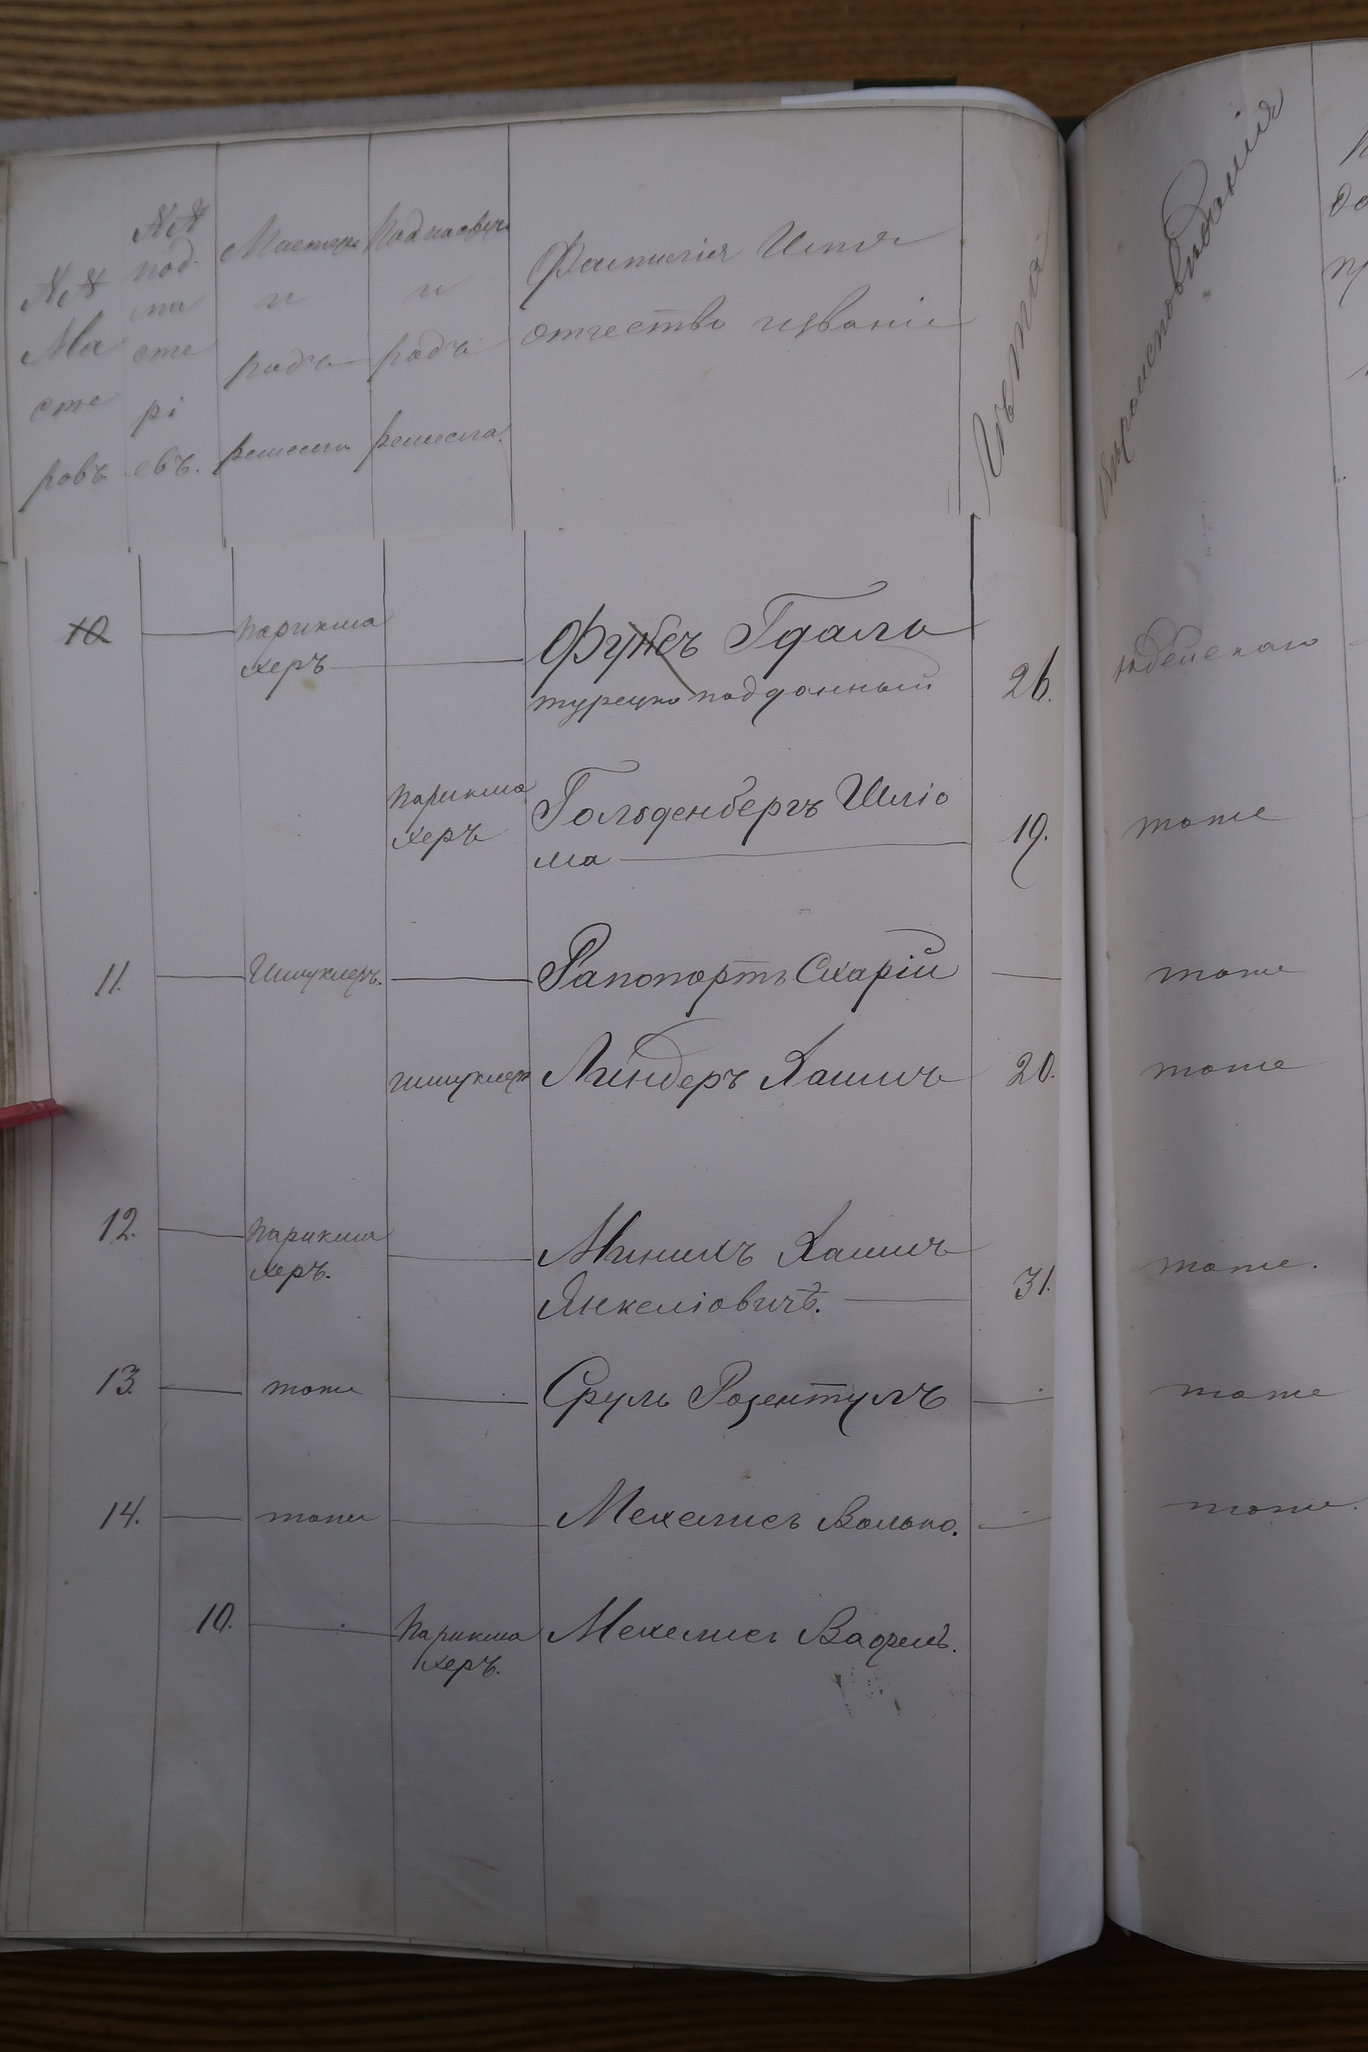 №№ Ма сте ровъ
№№ под ма сте рі евъ.
Мастеръ и родъ ремесла
Подмастеръ и родъ ремесла.
Фамилія Имя
отчество и званіе
Лѣта
Вѣроисповѣданія
10 Парикма Фуксъ Гдаль
херъ турецко подданный 26. Іюдейскаго
Парикма Гольденбергъ Шліо
херъ ма 19. тоже
11. Шмуклеръ. Рапопортъ Схарій тоже
Шмуклеръ Линдеръ Хаимъ 20. тоже
12. Парикма Минихъ Хаимъ
херъ. Янкеліовичъ. 31. тоже.
13. тоже Сруль Розентулъ тоже
14. тоже Мехелисъ Волько. тоже.
10. Парикма Мехелисъ
херъ.